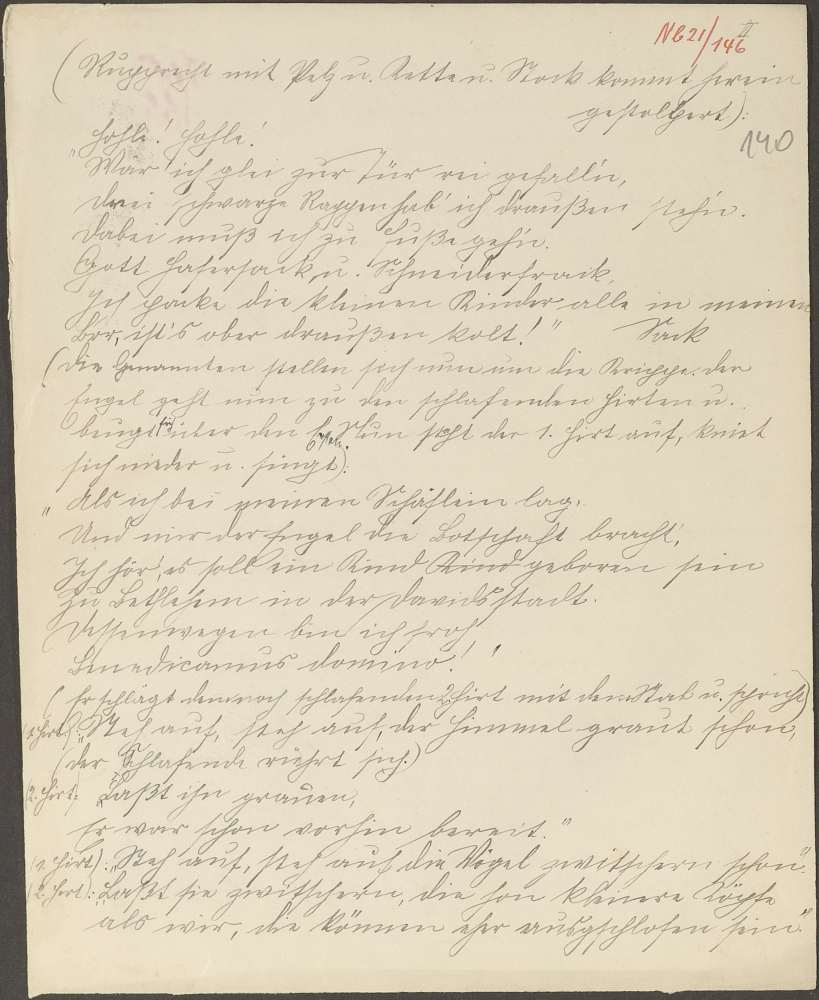 NG21/146 II
(Rupprecht mit Pelz u. Kette u. Stock kommt herein
gestolpert):
140
Hohle! Hohle!
"Wär' ich glei zur Tür rei gefall'n,
Drei schwarze Rappen hab' ich draußen steh'n.
Dabei muß ich zu Fuße geh'n.
Gott Hafersack u. Schneiderfrack,
Ich packe die kleinen Kinder alle in meinen
Brr, ist's ober draußen kolt!" Sack
(Die Genannten stellen sich nun um die Krippe. Der
Engel geht nun zu den schlafenden Hirten u.
beugt sich über den Ersten. Nun steht der 1. Hirt auf, kniet
sich nieder u. singt):
"Als ich bei meinen Schäflein lag,
Und mir der Engel die Botschaft bracht',
Ich hör', es soll ein Kind Kind geboren sein
Zu Bethlehem in der Davidsstadt.
Dessenwegen bin ich froh
Benedicamus domino!"
(Er schlägt dem noch schlafenden 2. Hirt mit dem Stab u. spricht)
(1. Hirt): "Steh auf, steh auf, der Himmel graut schon,
(der Schlafende rührt sich.)
(2. Hirt: Laßt ihn grauen,
Er war schon vorhin bereit."
(1. Hirt): "Steh auf, steh auf, die Vögel zwitschern schon".
(2. Hirt): "Laßt sie zwitschern, die hon kleinere Köpfe
als wir, die können eher ausgschlofen sein."